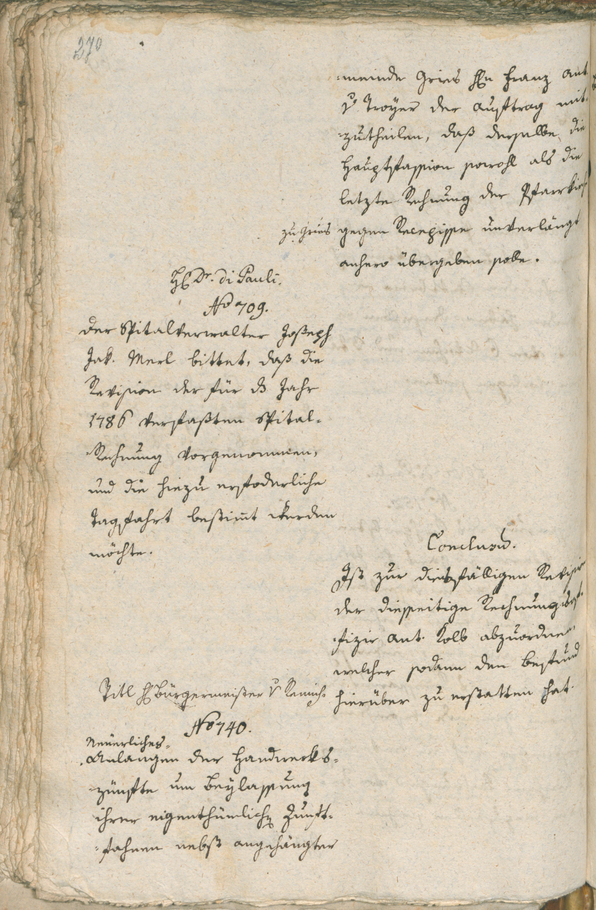 270
meinde Gries H̃n Franz Ant.
v Troyer der Auftrag mit-
zutheilen, daß derselbe die
Hauptfassion sowohl als die
letzte Rechnung der Pfarrkirche
zu Gries gegen Recepisse unverlängt
anhero übergeben solle.
H̃ Dr. di Pauli.
No 709.
Der Spitalverwalter Joseph
Jak. Merl bittet, daß die
Revision der für ds Jahr
1786 verfaßten Spital-
Rechnung vorgenommen,
und die hiezu erfoderliche
Tagfahrt bestimt werden
möchte.
Conclusũ.
Ist zur diesfälligen Revision
der diesseitige Rechnungsof-
fizir Ant. Kolb abzuordnen
welcher sodann den Befund
hierüber zu erstatten hat.
Titl H̃ Bürgermeister v
No 740.
Neuerliches
Anlangen der Handwerks-
zünfte um Beylassung
ihrer eigenthümlichẽ Zunft-
fahnen nebst angehängter